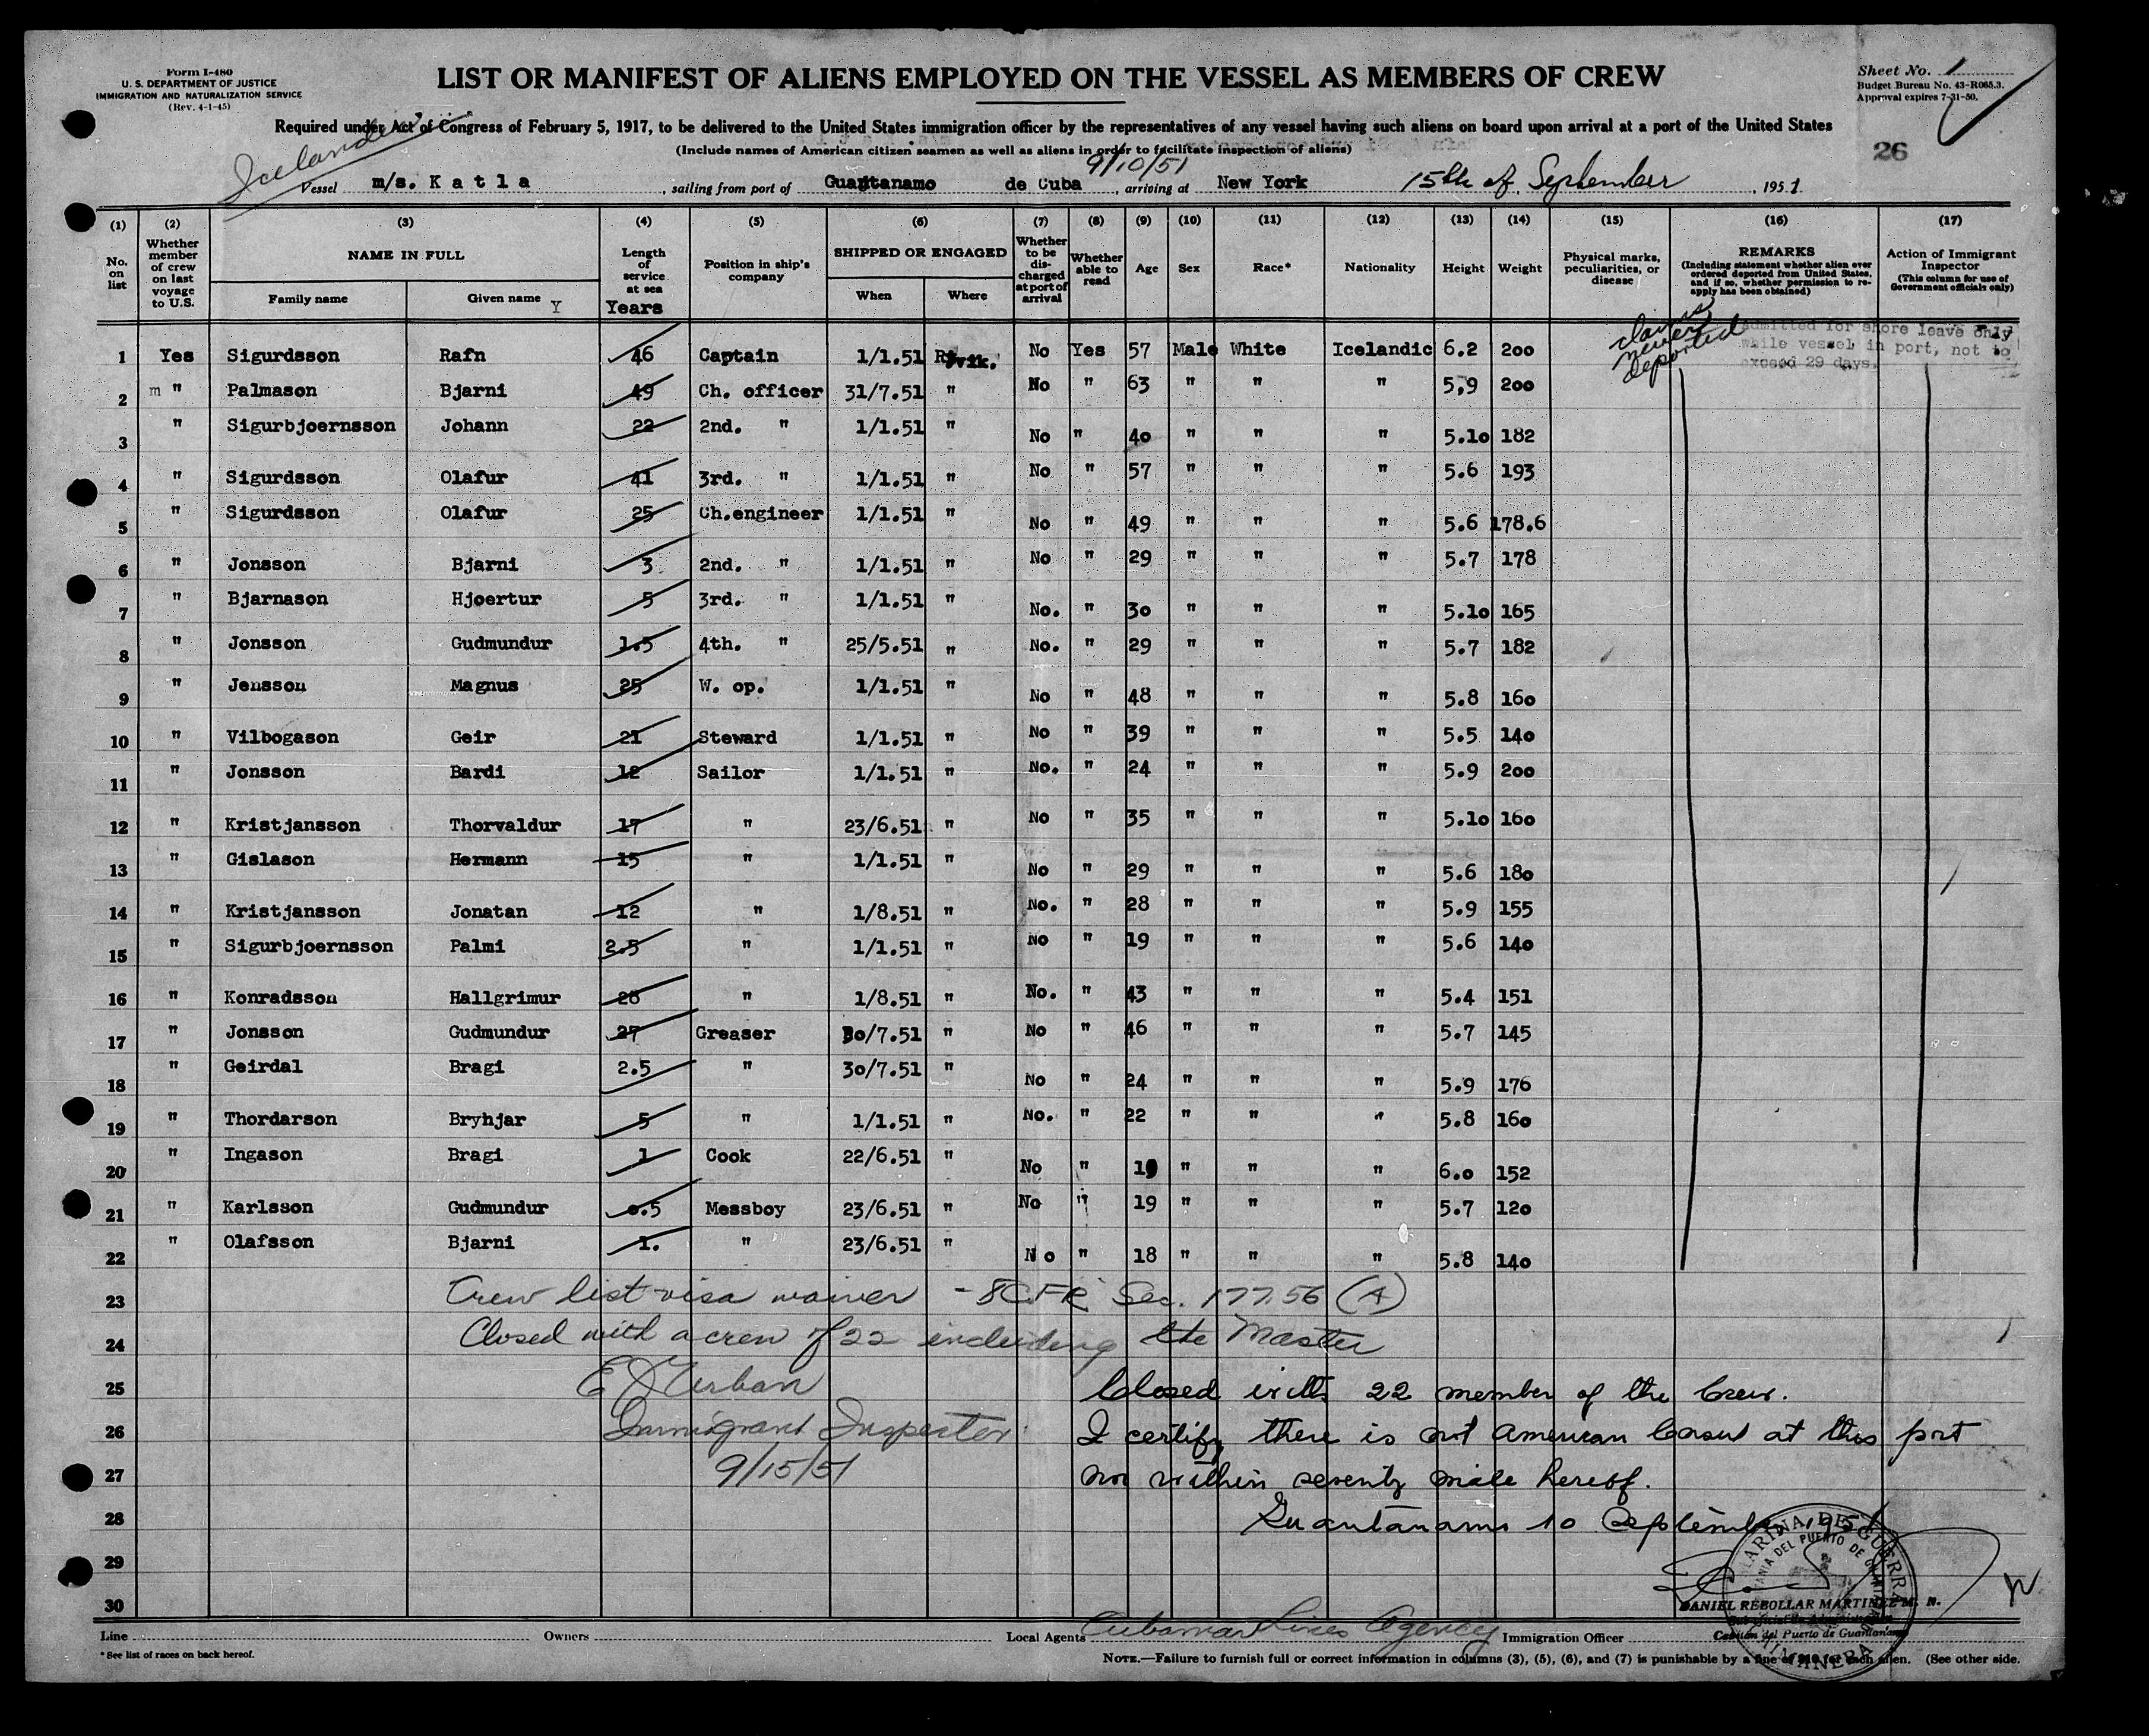 Form I-480
U. S. DEPARTMENT OF JUSTICE
IMMIGRATION AND NATURALIZATION SERVICE
(Rev. 4-1-45)
LIST OR MANIFEST OF ALIENS EMPLOYED ON THE VESSEL AS MEMBERS OF CREW
Sheet No. 1
Budget Bureau No. 43-R065.3.
Approval expires 7-31-50.
Required under Act of Congress of February 5, 1917, to be delivered to the United States immigration officer by the representatives of any vessel having such aliens on board upon arrival at a port of the United States
(Include names of American citizen seamen as well as aliens in order to facilitate inspection of aliens)
26
Icelandic
9/10/51
Vessel m/s. Katla, sailing from port of Guantanamo de Cuba, arriving at New York 15th of September, 1951.
(1) (2) (3) (4) (5) (6) (7) (8) (9) (10) (11) (12) (13) (14) (15) (16) (17)
No. on list
Whether member of crew on last voyage to U.S.
NAME IN FULL
Family name
Given name Y
Length of service at sea
Years
Position in ship's company
SHIPPED OR ENGAGED
When
Where
Whether to be discharged at port of arrival
Whether able to read
Age
Sex
Race*
Nationality
Height
Weight
Physical marks, peculiarities, or disease
REMARKS
(Including statement whether alien ever ordered deported from United States, and if so, whether permission to reapply has been obtained)
Action of Immigrant Inspector
(This column for use of Government officials only)
claims never deported
admitted for shore leave only
while vessel in port, not to
exceed 29 days.
1 Yes Sigurdsson Rafn 46 Captain 1/1.51 Rjvik. No Yes 57 Male White Icelandic 6.2 200
2 m " Palmason Bjarni 49 Ch. officer 31/7.51 " No " 63 " " " 5,9 200
3 " Sigurbjoernsson Johann 22 2nd. " 1/1.51 " No " 40 " " " 5.10 182
4 " Sigurdsson Olafur 41 3rd. " 1/1.51 " No " 57 " " " 5.6 193
5 " Sigurdsson Olafur 25 Ch.engineer 1/1.51 " No " 49 " " " 5.6 178.6
6 " Jonsson Bjarni 3 2nd. " 1/1.51 " No " 29 " " " 5.7 178
7 " Bjarnason Hjoertur 5 3rd. " 1/1.51 " No. " 30 " " " 5.10 165
8 " Jonsson Gudmundur 1.5 4th. " 25/5.51 " No. " 29 " " " 5.7 182
9 " Jensson Magnus 25 W. op. 1/1.51 " No " 48 " " " 5.8 160
10 " Vilbogason Geir 21 Steward 1/1.51 " No " 39 " " " 5.5 140
11 " Jonsson Bardi 12 Sailor 1/1.51 " No. " 24 " " " 5.9 200
12 " Kristjansson Thorvaldur 17 " 23/6.51 " No " 35 " " " 5.10 160
13 " Gislason Hermann 15 " 1/1.51 " No " 29 " " " 5.6 180
14 " Kristjansson Jonatan 12 " 1/8.51 " No. " 28 " " " 5.9 155
15 " Sigurbjoernsson Palmi 2.5 " 1/1.51 " No " 19 " " " 5.6 140
16 " Konradsson Hallgrimur 28 " 1/8.51 " No. " 43 " " " 5.4 151
17 " Jonsson Gudmundur 27 Greaser 30/7.51 " No " 46 " " " 5.7 145
18 " Geirdal Bragi 2.5 " 30/7.51 " No " 24 " " " 5.9 176
19 " Thordarson Bryhjar 5 " 1/1.51 " No. " 22 " " " 5.8 160
20 " Ingason Bragi 1 Cook 22/6.51 " No " 19 " " " 6.0 152
21 " Karlsson Gudmundur 0.5 Messboy 23/6.51 " No " 19 " " " 5.7 120
22 " Olafsson Bjarni 1. " 23/6.51 " No " 18 " " " 5.8 140
23 Crew list visa waiver - 8CFR Sec. 177.56 (A)
24 Closed with a crew of 22 including the Master
25 E J Urban Closed with 22 member of the Crew.
26 Immigrant Inspector I certify there is not American Consul at this port
27 9/15/51 nor within seventy mile hereof.
28 Guantanamo 10 September 1951
29
30
MARINA DE GUERRA
CAPITANIA DEL PUERTO DE GUANTANAMO
CAIMANERA
DANIEL REBOLLAR MARTINEZ M. N.
Capitán del Puerto de Guantánamo
Line Owners Local Agents Cubamar Lines Agency Immigration Officer
*See list of races on back hereof.
NOTE.—Failure to furnish full or correct information in columns (3), (5), (6), and (7) is punishable by a fine of $10 for each alien. (See other side.